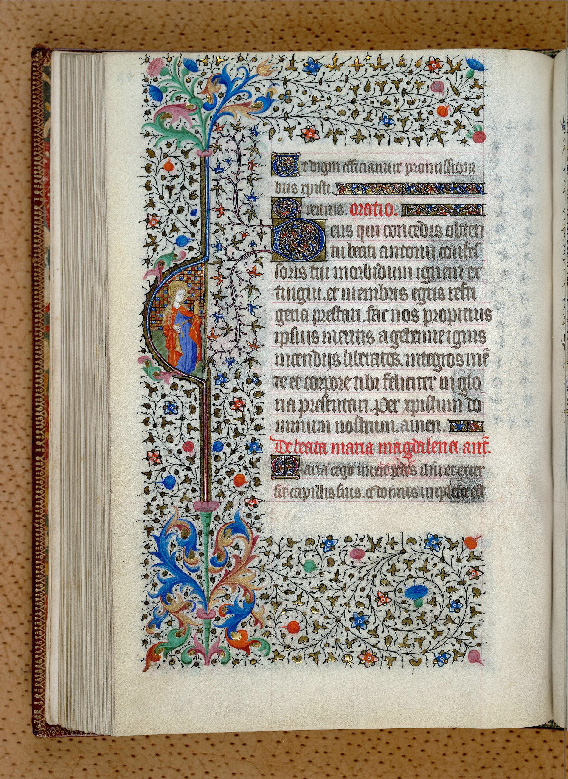 Ut digni efficiamur promissioni
bus christi.
Oremus. oratio.
Deus qui concedis obten
tu beati antonii confes
soris tui morbidum ignem ex
tingui. et membris egris refri
geria prestari. fac nos propicius
ipsius meritis a gehenne ignis
incendiis liberatos. integros mēte
te et corpore tibi feliciter in glo
ria presentari. Per xpistum do
minum nostrum. amen.
De beata maria magdalena ant.
Maria ergo unxit pedes ihesu et exter
sit capillis suis. et domus impleta est